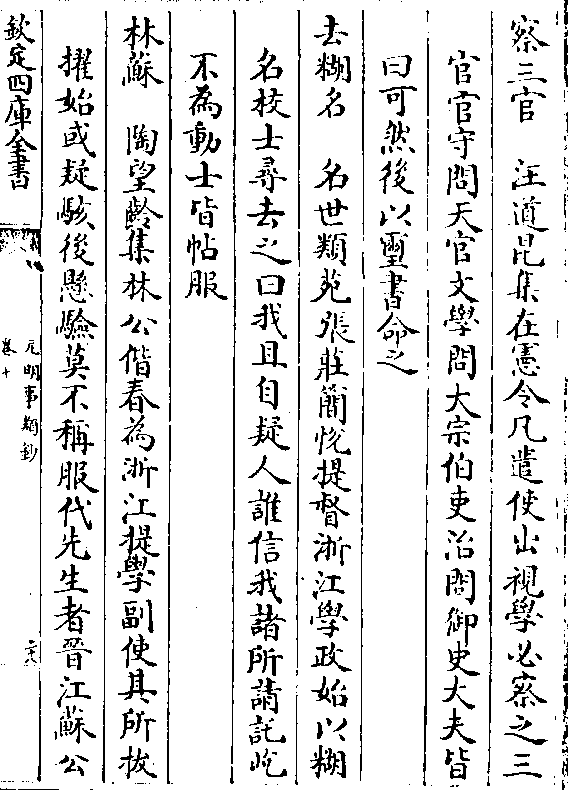 察三官　汪道昆集在憲令凡遣使出視學必察之三
官官守問天官文學問大宗伯吏治問御史大夫皆
曰可然後以璽書命之
去糊名　名世類苑張莊簡悅提督浙江學政始以糊
名校士尋去之曰我且自疑人誰信我諸所請託屹
不為動士皆帖服
林蘇　陶望齡集林公偕春為浙江提學副使其所拔
擢始或疑駭後懸驗莫不稱服代先生者晉江蘇公
欽定四庫全書
元明事類鈔
卷十
二十八